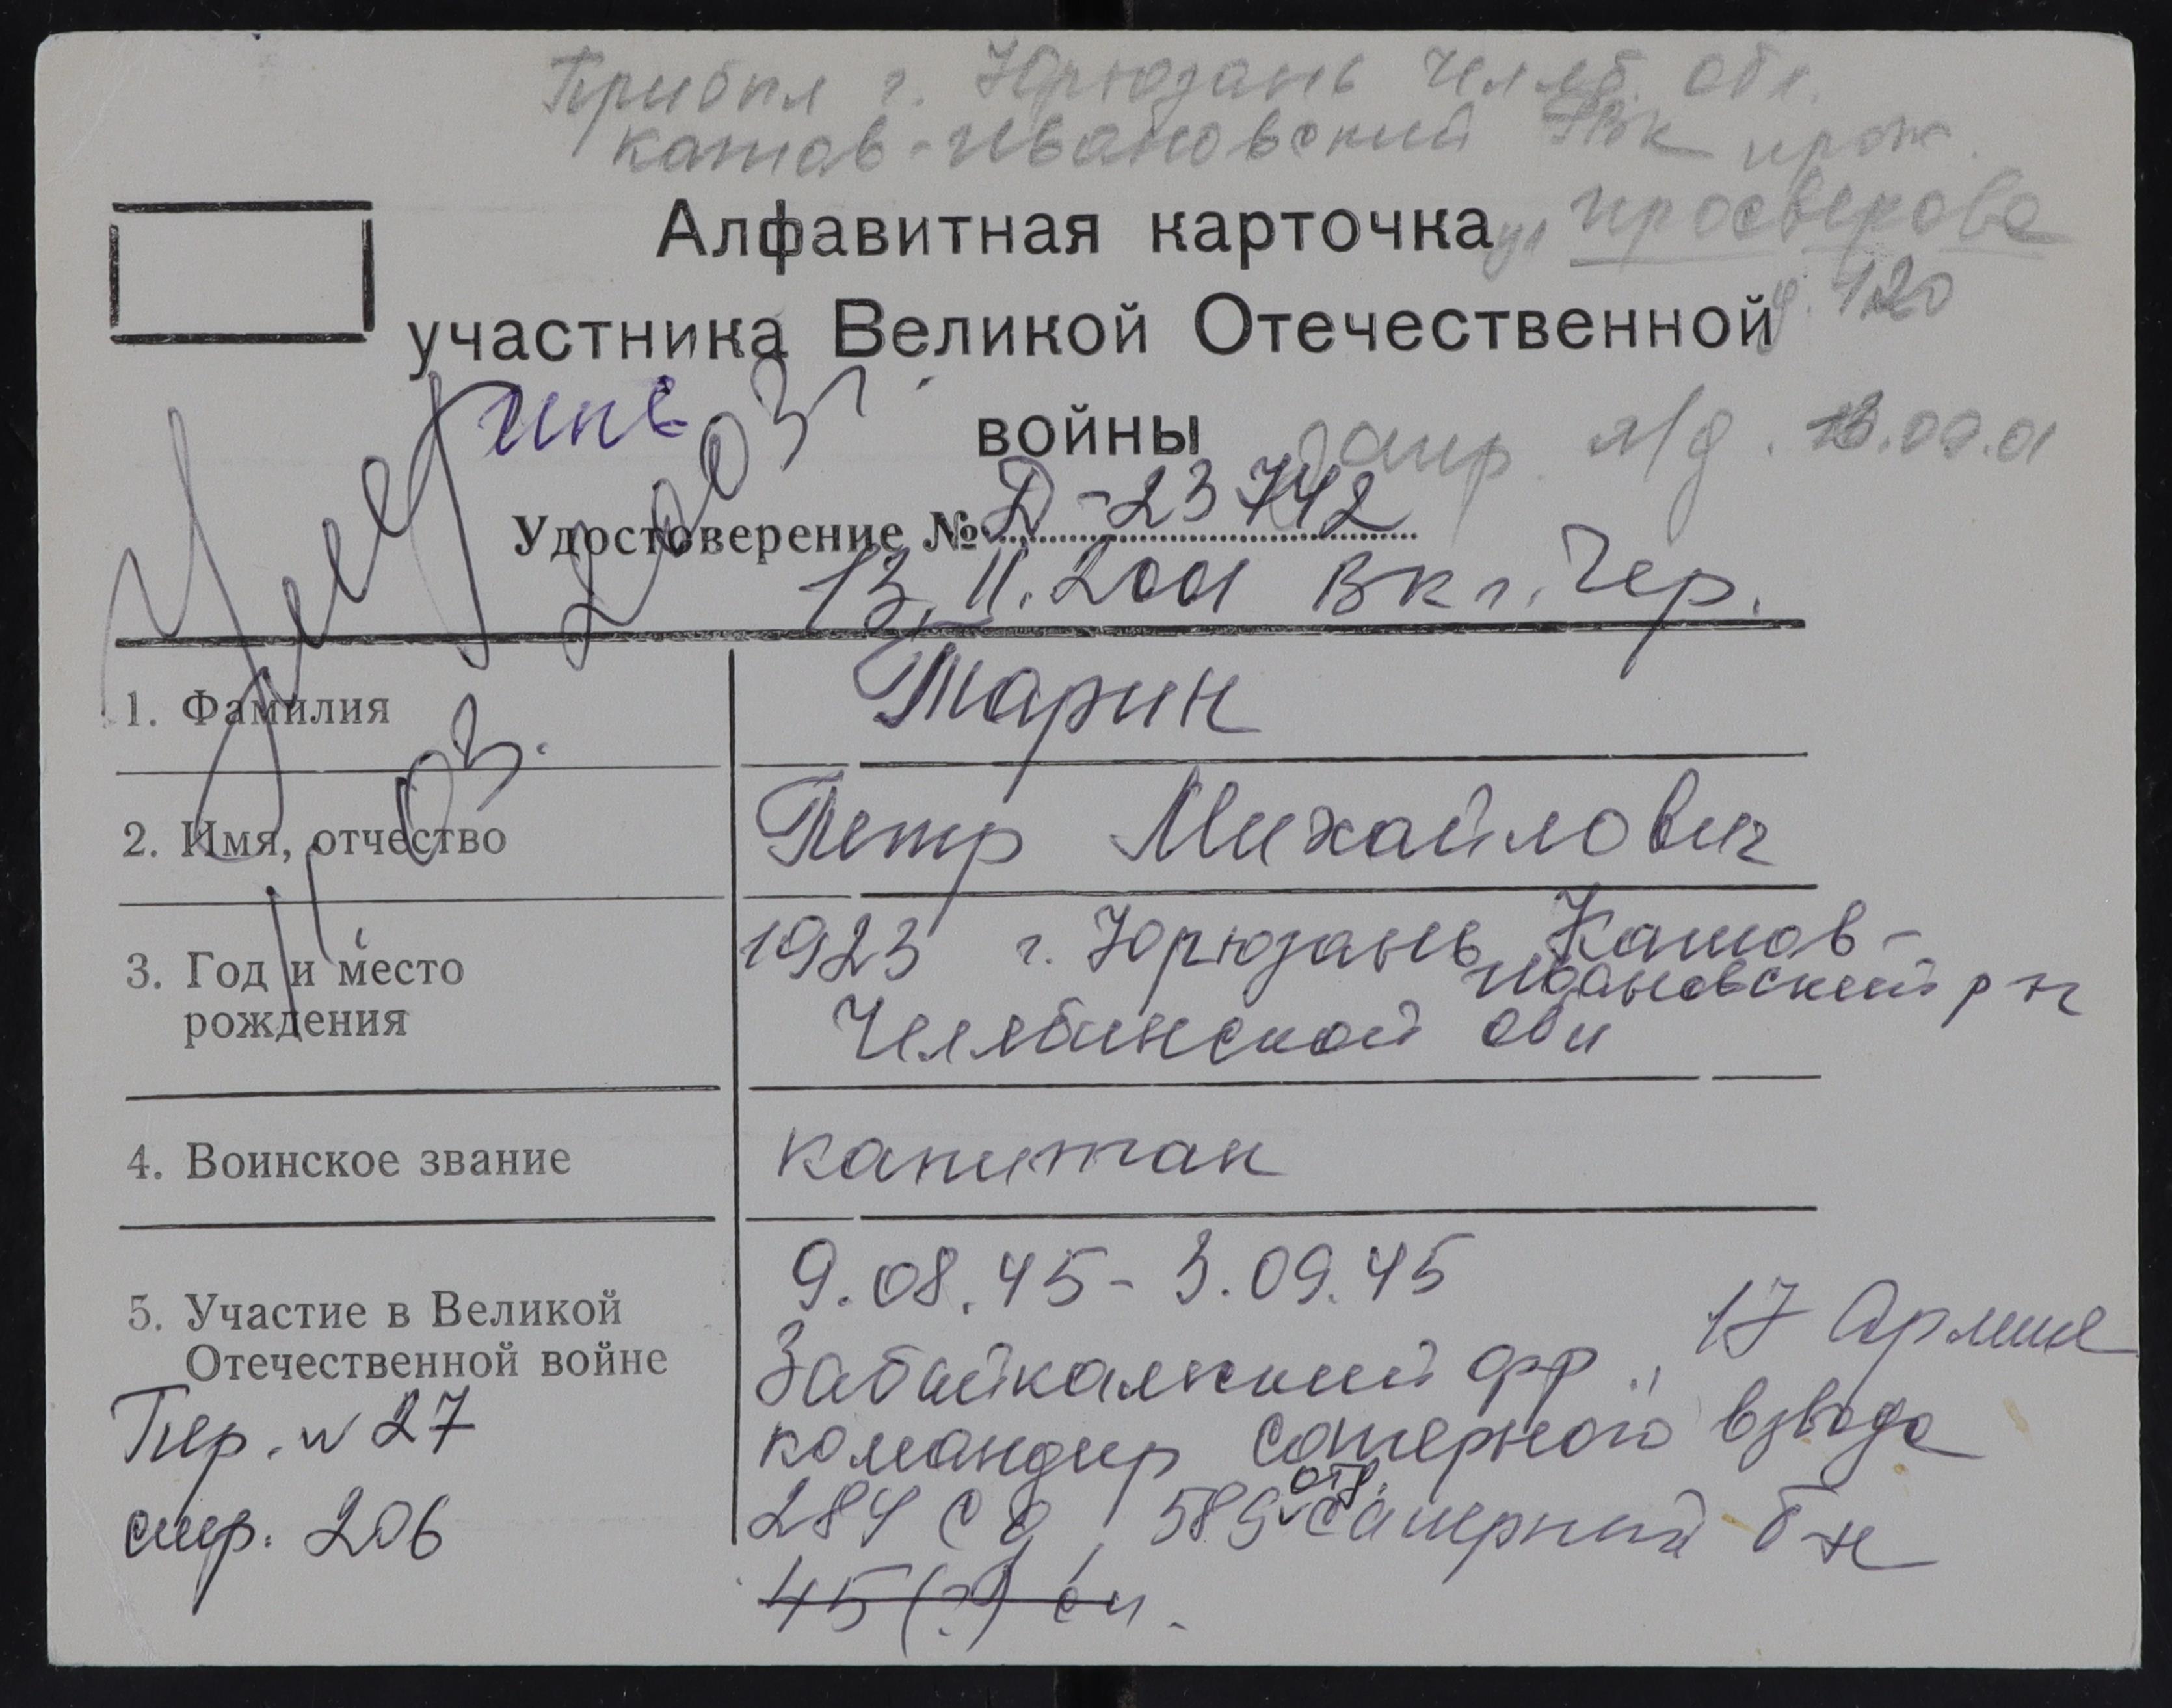 Прибыл г. Юрюзань Челяб. обл.
Катав-Ивановский РВК прож.
Алфавитная карточка ул.
д. 120
участника Великой Отечественной
войны запр. л/д. 13.09.01
Умер
2003г.
Удостоверение № Д-23742
13.11.2001 Вкл. Чер.
1. Фамилия Тарин
03.
2. Имя, отчество Петр Михайлович
3. Год и место рождения 1923 г. Юрюзань Катав-
Ивановский р-н
Челябинской обл
4. Воинское звание капитан
5. Участие в Великой Отечественной войне 9.08.45 - 3.09.45
Забайкальский фр., 17 Армия
командир саперного взвода
284 сд, 589 отд. саперный б-н
45(?) сп.
Пер. № 27
стр. 206